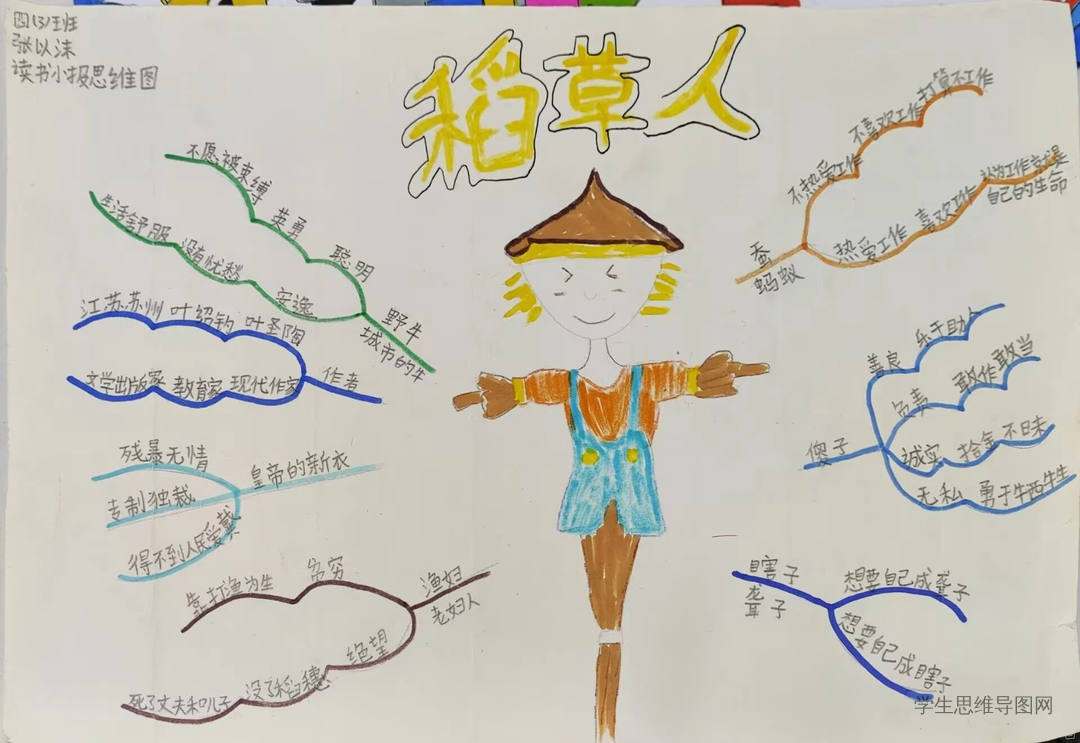 四(3)班
张以沫
读书小报思维图
稻草人
不愿被束缚
英勇
聪明
野牛
生活舒服
没有忧愁
安逸
城市的牛
江苏苏州
叶绍钧
叶圣陶
作者
文学出版家
教育家
现代作家
残暴无情
专制独裁
得不到人民爱戴
皇帝的新衣
靠打渔为生
贫穷
渔妇
老妇人
绝望
没了稻穗
死了丈夫和儿子
打算不工作
不喜欢工作
不热爱工作
蚕
蚂蚁
热爱工作
喜欢工作
认为工作就是
自己的生命
善良
乐于助人
负责
敢作敢当
傻子
诚实
拾金不昧
无私
勇于牺牲
瞎子
聋子
想要自己成聋子
想要自己成瞎子
学生思维导图网